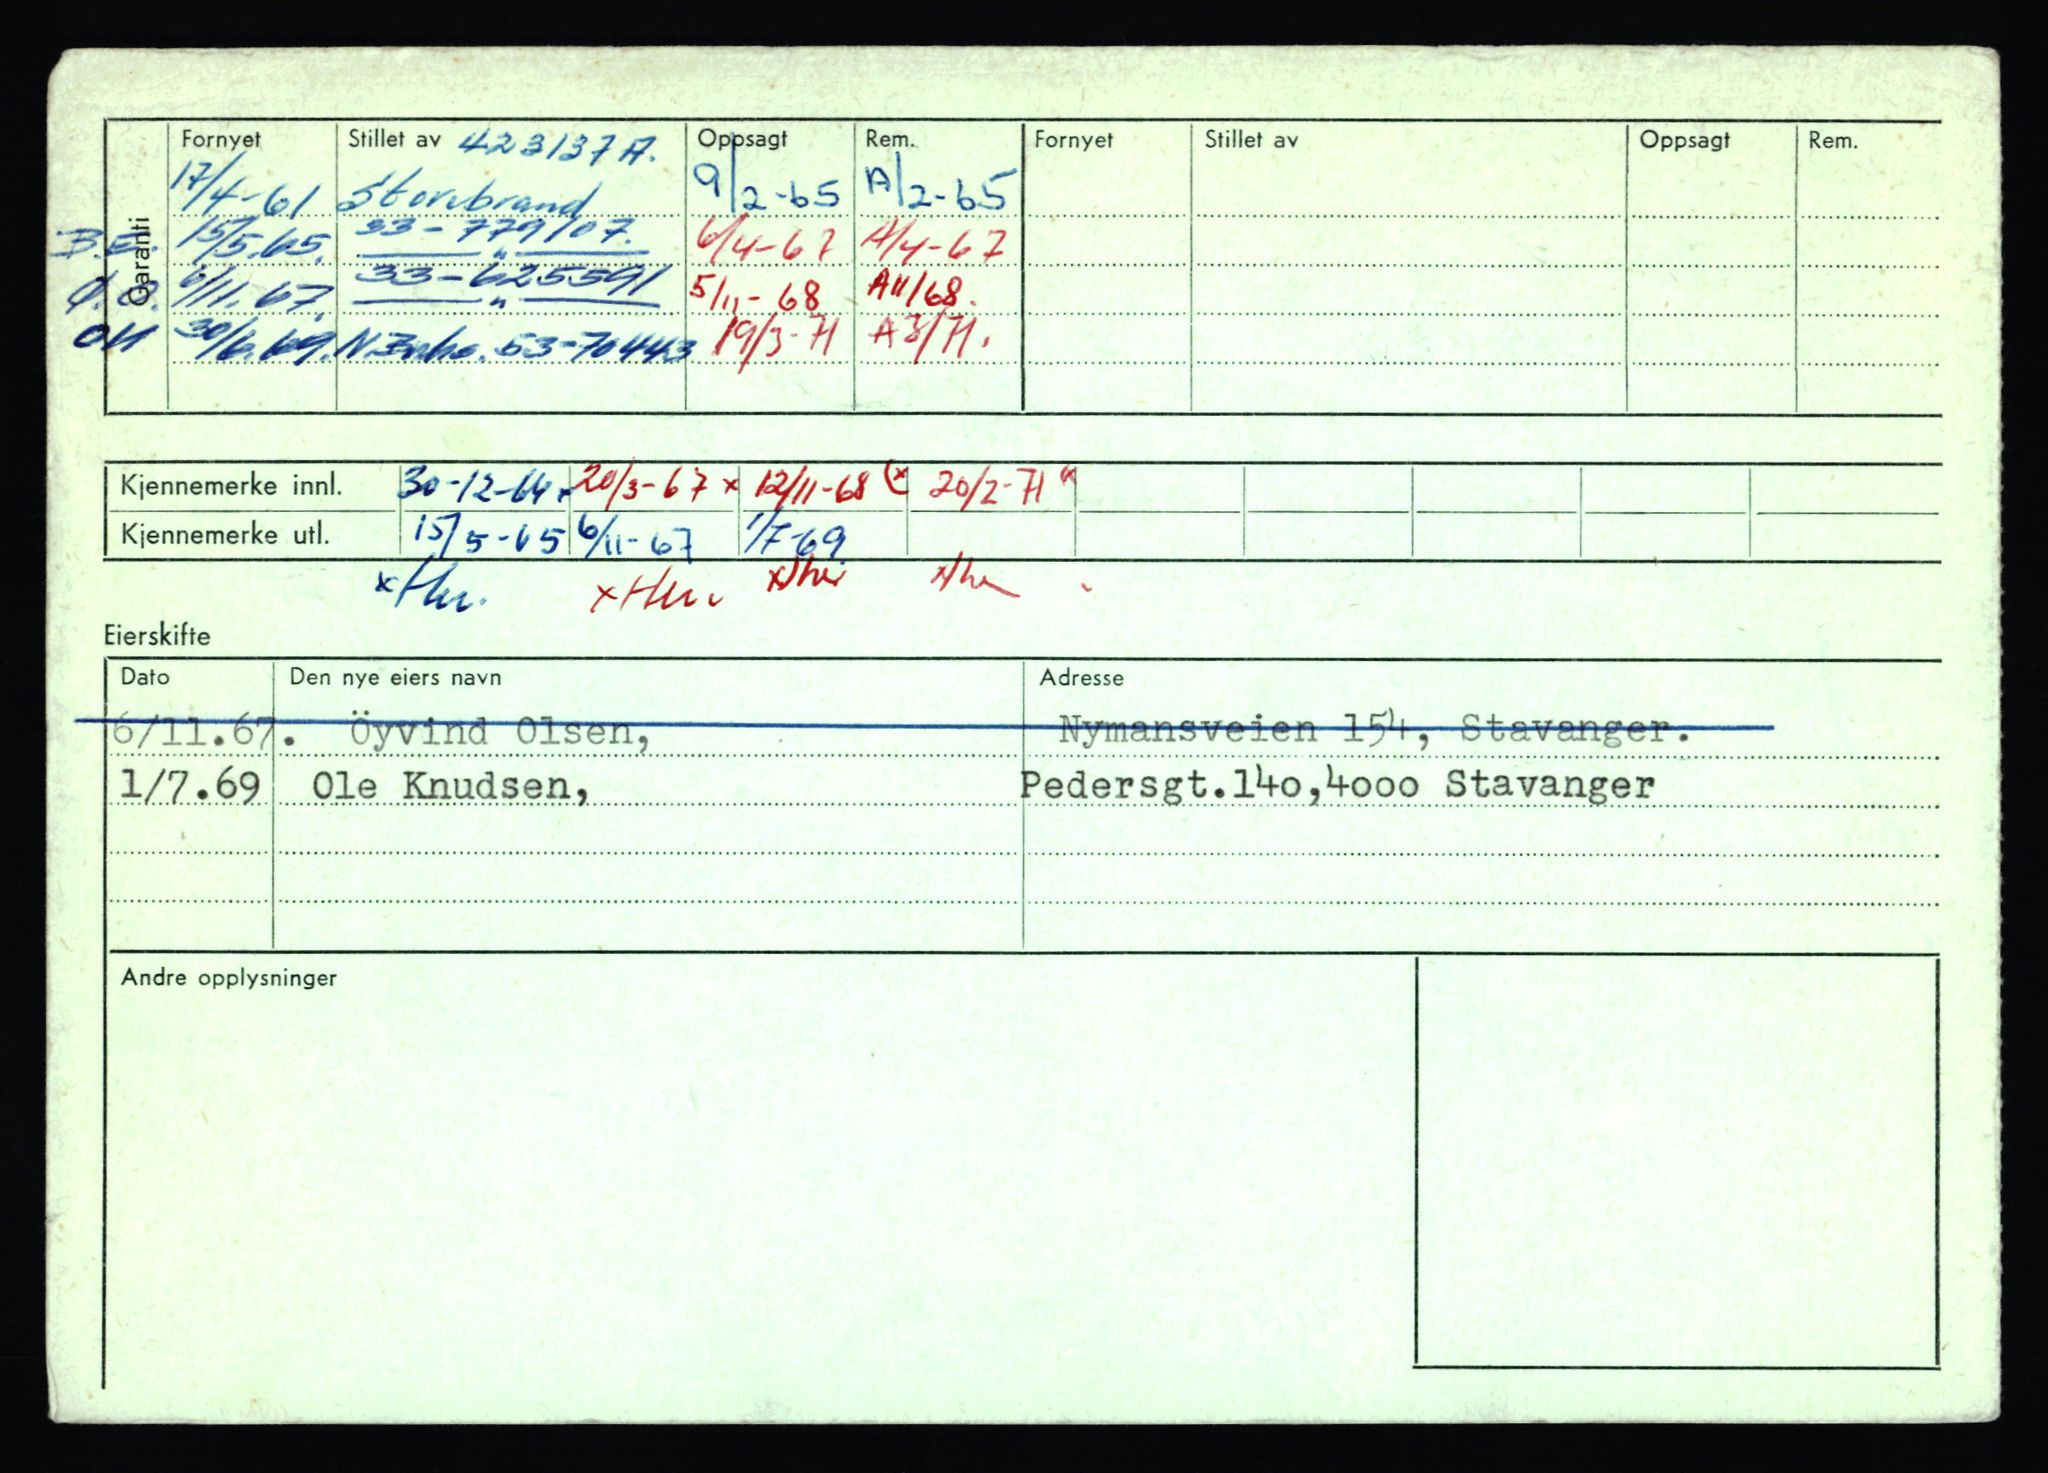 Garanti
Fornyet Stillet av 423137 A. Oppsagt Rem. Fornyet Stillet av Oppsagt Rem.
17/4-61 Storebrand 9/2-65 A/2-65
15/5.65. 33-779107. 6/4-67 A/4-67
6/11.67. 33-625591 5/11-68 A11/68.
30/6.69. 53-70443 19/3-71 A3/71.
Kjennemerke innl. 30-12-64 x 20/3-67 x 12/11-68 (x 20/2-71 x
Kjennemerke utl. 15/5-65 6/11-67 1/7-69
Eierskifte
Dato Den nye eiers navn Adresse
6/11.67. Öyvind Olsen, Nymansveien 154, Stavanger.
1/7.69 Ole Knudsen, Pedersgt.140,4000 Stavanger
Andre opplysninger